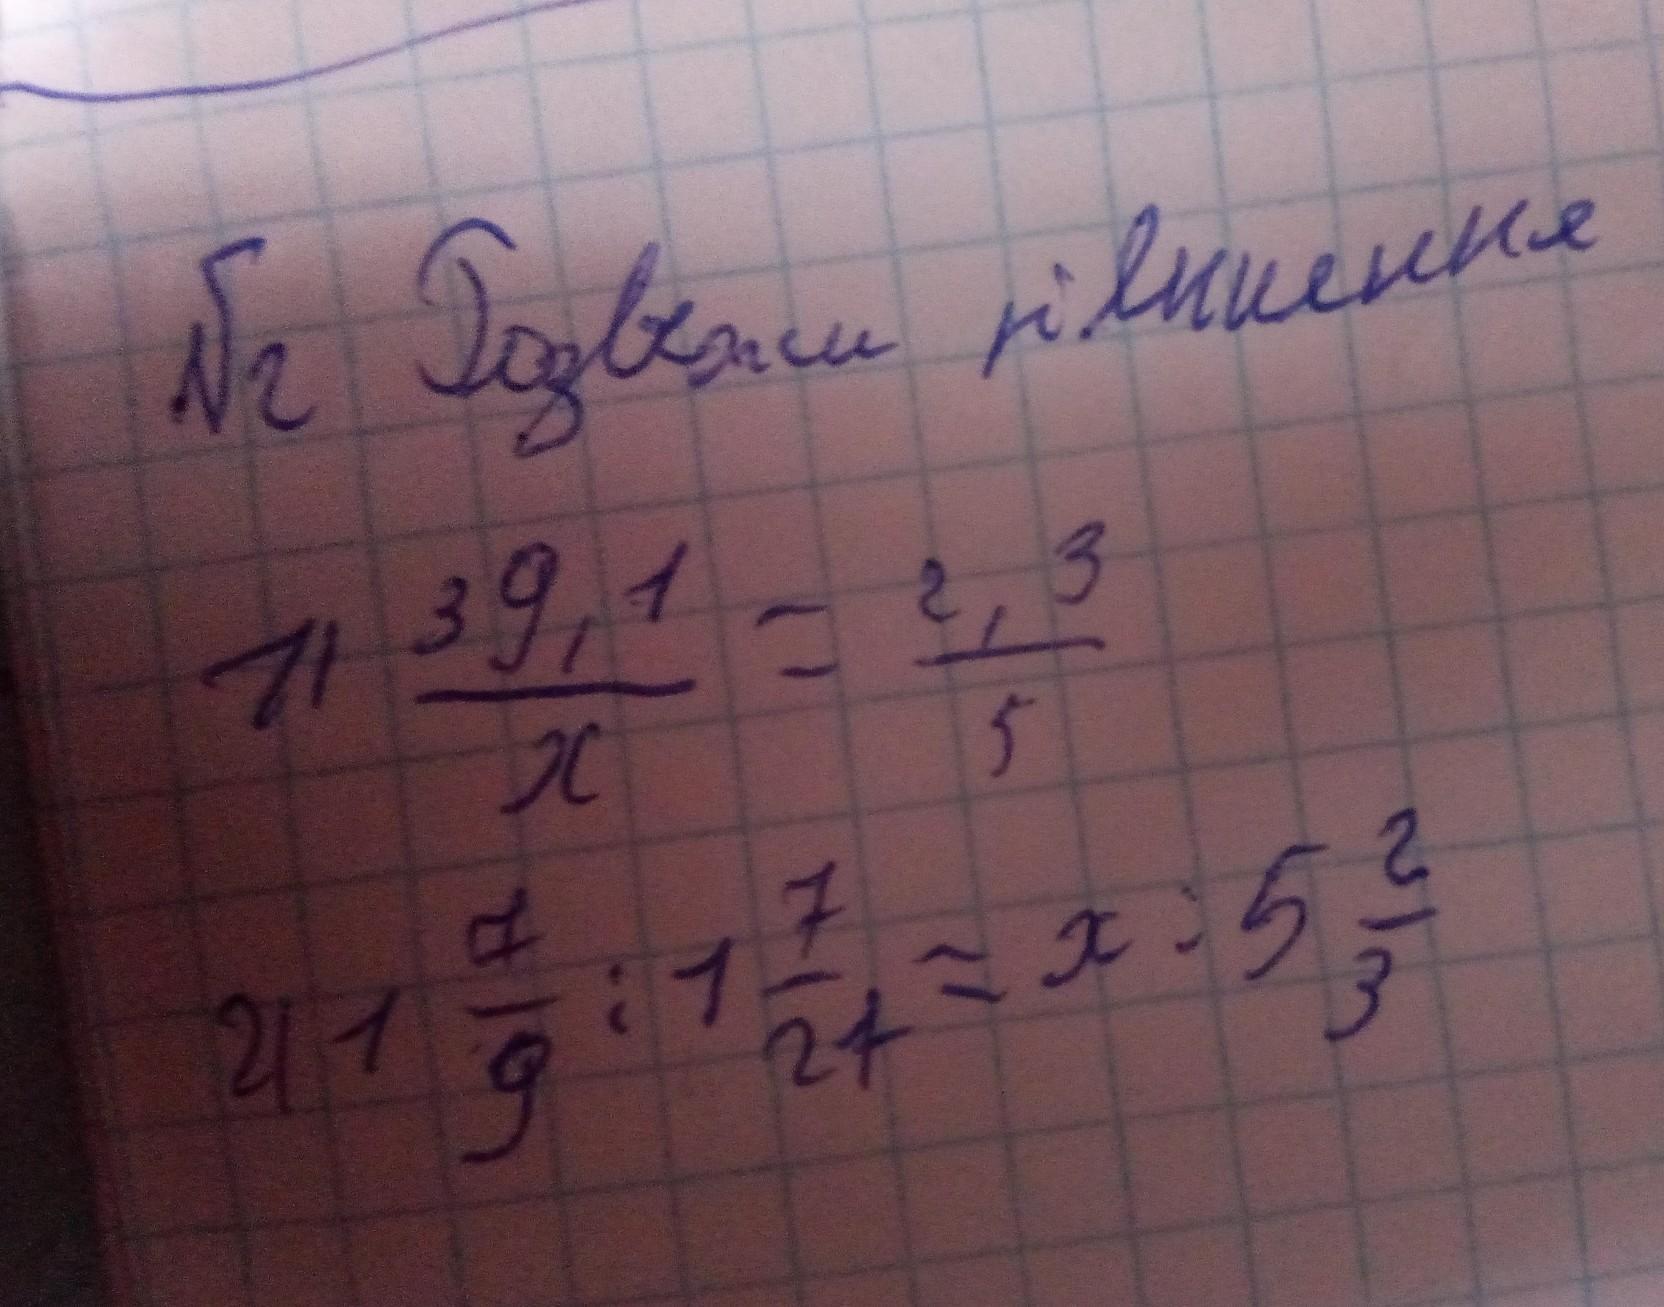 №2 Розвяжи рівняння
1) 39,1/x = 2,3/5
2) 1 7/9 : 1 7/27 = x : 5 2/3